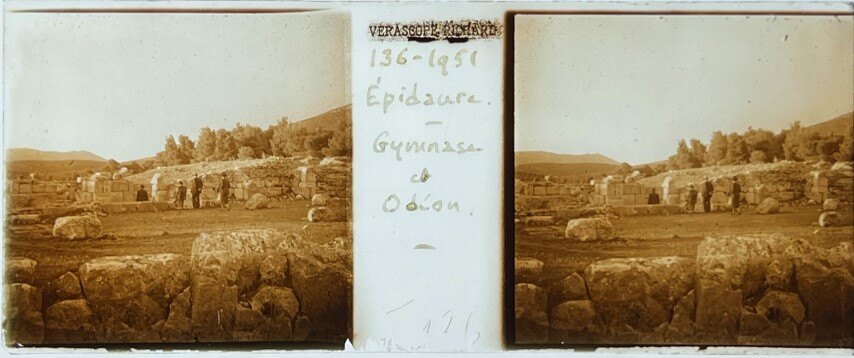 VERASCOPE RICHARD
136-1951
Épidaure.
Gymnase
et
Odéon.